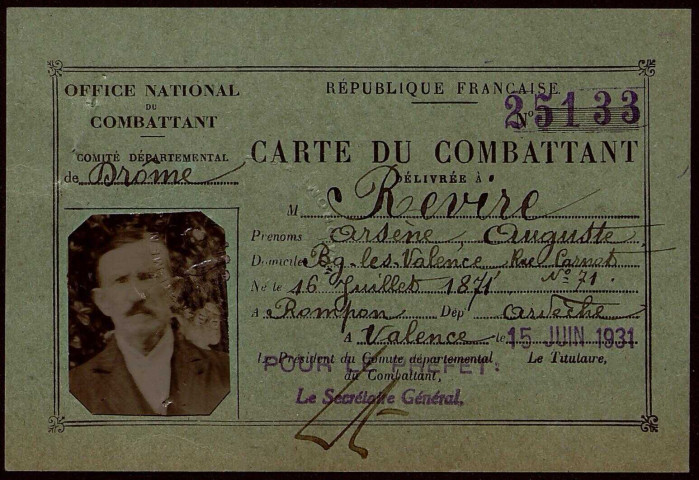 OFFICE NATIONAL
DU
COMBATTANT
COMITÉ DÉPARTEMENTAL
de Drôme
RÉPUBLIQUE FRANÇAISE
N° 25133
CARTE DU COMBATTANT
DÉLIVRÉE À
M Revire
Prénoms Arsène, Auguste
Domicile Bg-les-Valence Rue Carnot
N° 71
Né le 16 Juillet 1871
à Rompon Dép Ardèche
A Valence le 15 JUIN 1931
Le Président du Comité départemental
du Combattant,
Le Titulaire,
POUR LE PRÉFET:
Le Secrétaire Général,